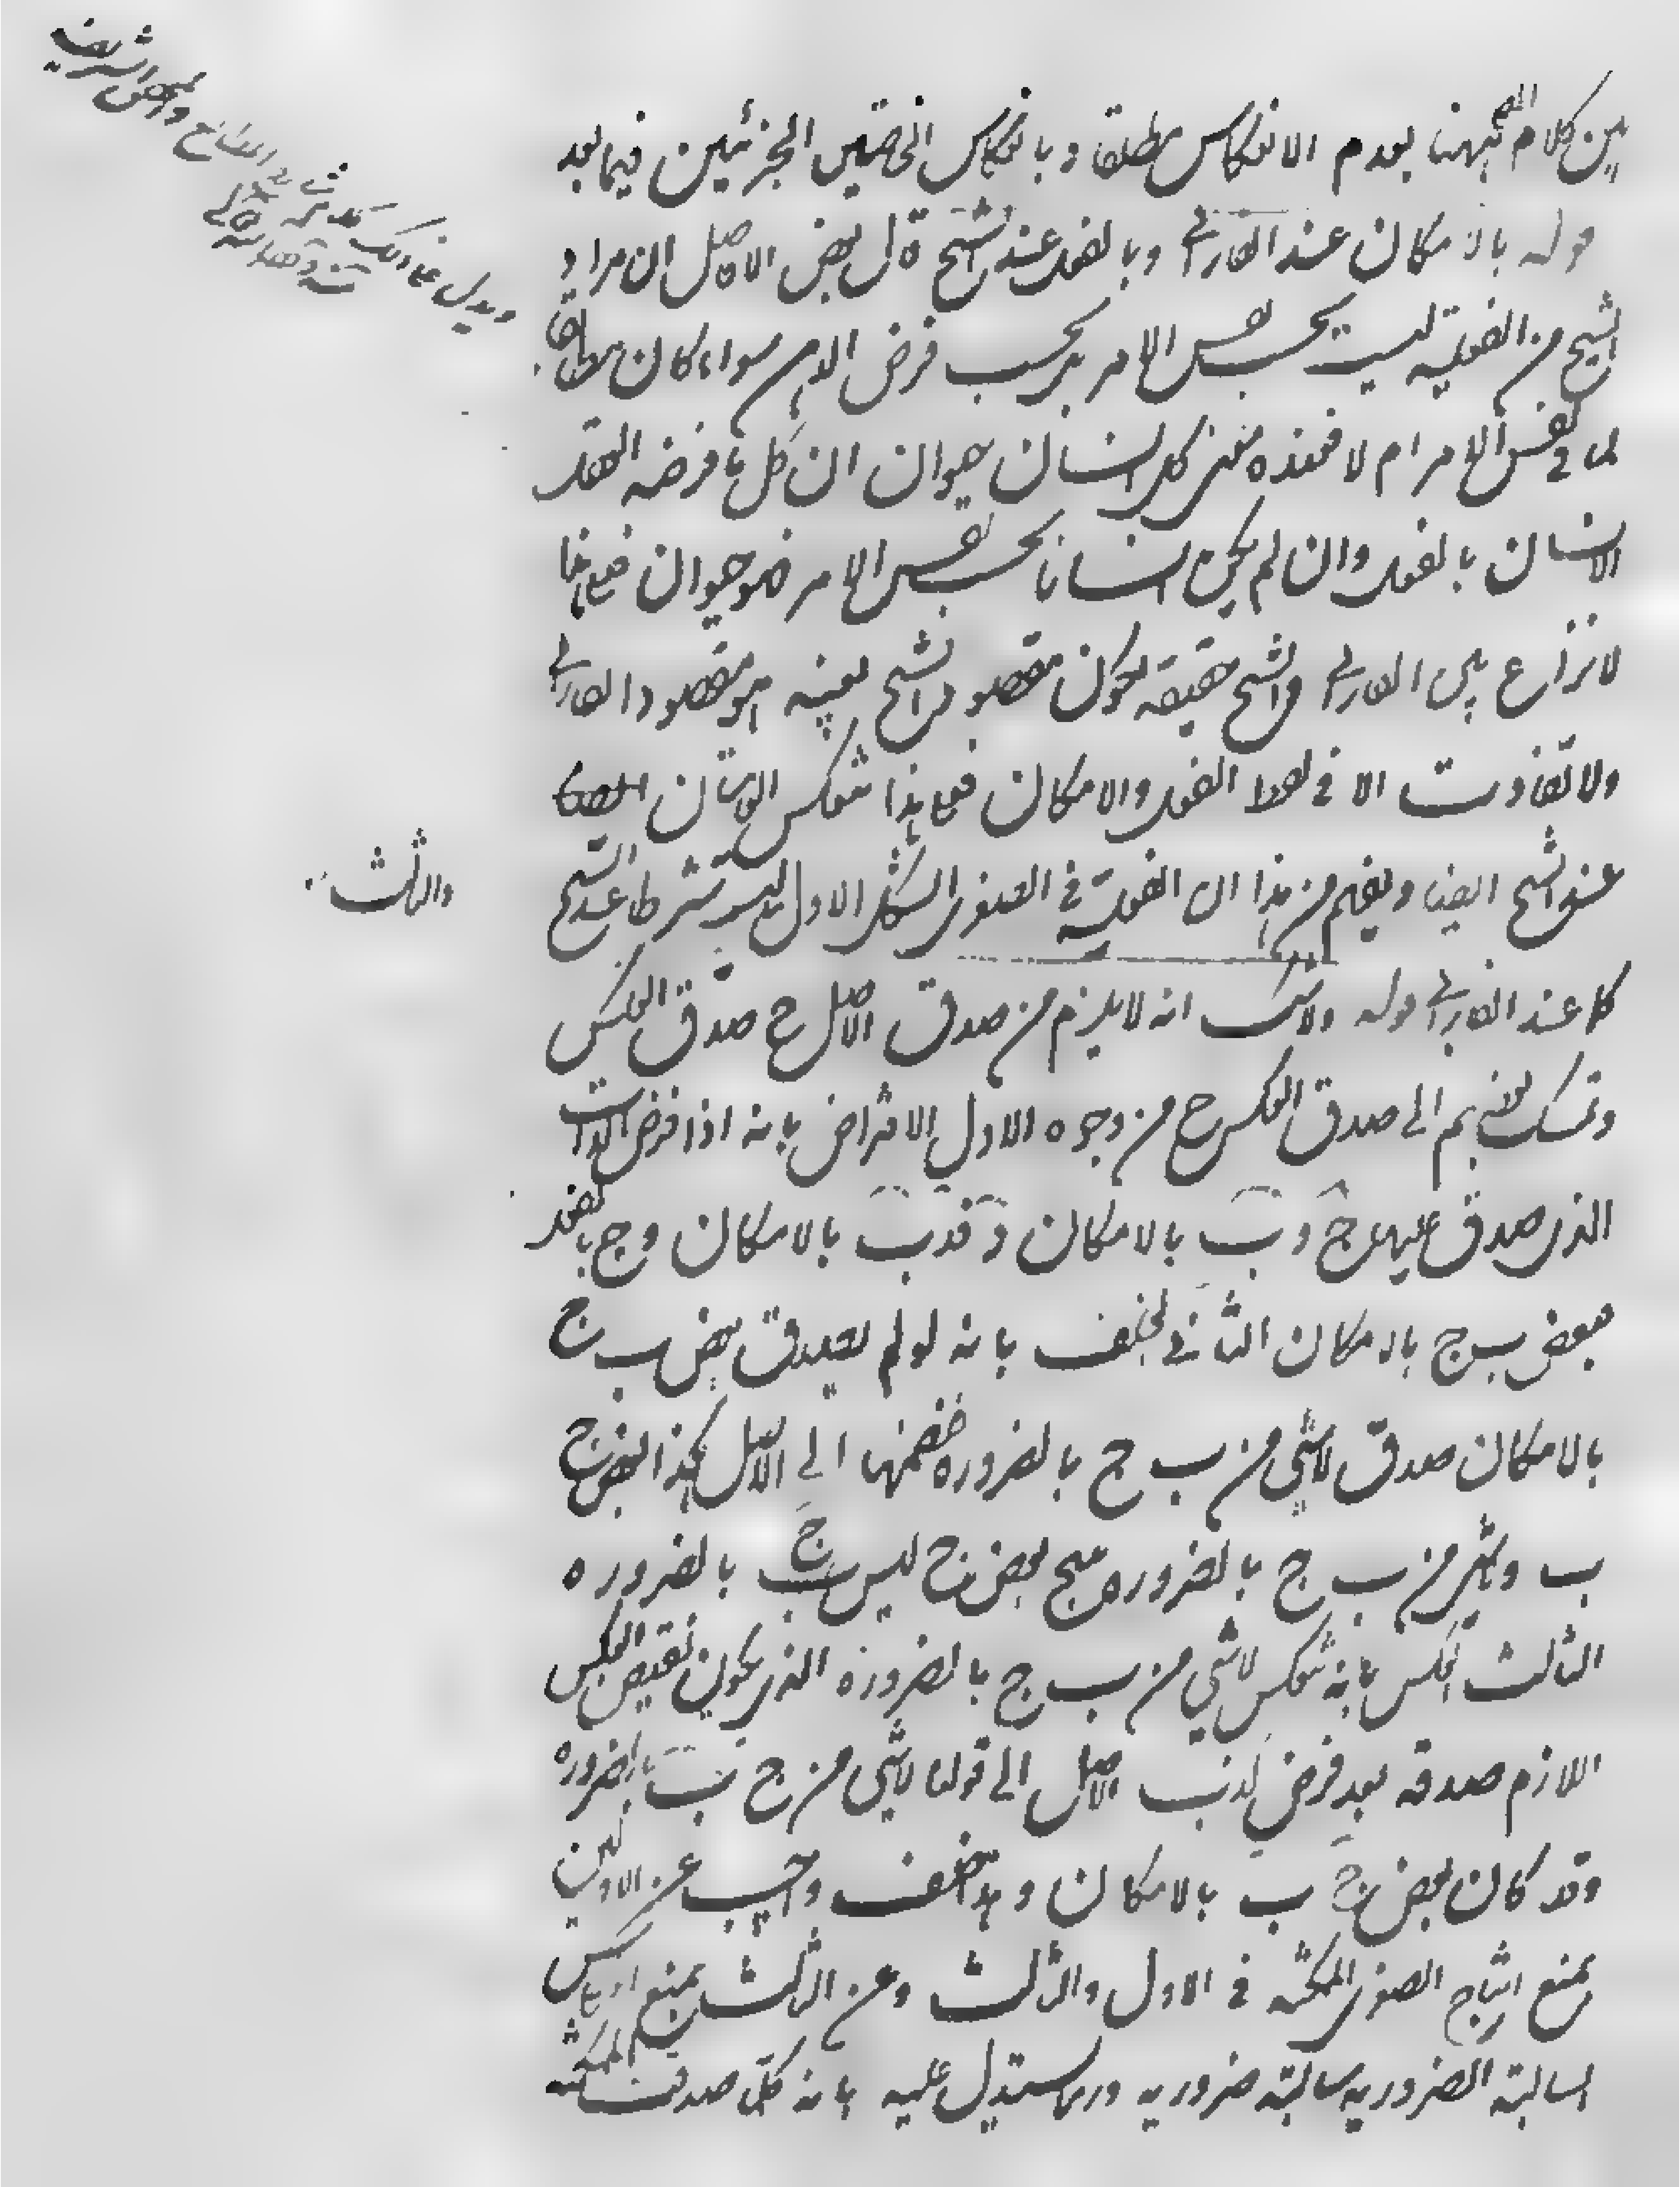 بين كلام المص ههنا بعدم الانعكاس مطلقا وبانعكاس الخاصتين الجزئيتين فيما بعد
قوله بالامكان عند الفارابي وبالفعل عند الشيخ قال بعض الافاضل ان مراد
الشيخ من الفعلية ليست بحسب نفس الامر بل بحسب فرض الذهن سواء كان مطابقا
لما في نفس الامر ام لا فعنده معنى كل انسان حيوان ان كل ما فرضه العقل
الانسان بالفعل وان لم يكن انسانا بحسب نفس الامر فهو حيوان فعلى هذا
لا نزاع بين الفارابي والشيخ حقيقة لكون مقصود الشيخ بعينه هو مقصود الفارابي
ولا تفاوت الا في لفظ الفعل والامكان فعلى هذا تنعكس الممكنتان ايضا
عند الشيخ ايضا ويفهم من هذا ان الفعلية في الصغرى الشكل الاول ليست شرطا عند الشيخ
والثالث
كما عند الفارابي قوله ولا شك انه لا يلزم من صدق الاصل ح صدق العكس
وتمسك بعضهم الى صدق العكس ح من وجوه الاول الافتراض بانه اذا فرض الذات
الذي صدق عليها ج و ب بالامكان د فدب بالامكان و ج بالفعل
فبعض ب ج بالامكان الثاني الخلف بانه لو لم يصدق بعض ب ج
بالامكان صدق لا شيء من ب ج بالضرورة فضمنها الى الاصل هكذا بعض ج
ب ولا شيء من ب ج بالضرورة ينتج بعض ج ليس ج بالضرورة
الثالث العكس بانه تنعكس لا شيء من ب ج بالضرورة الذي يكون نقيض العكس
اللازم صدقه بعد فرض كذب الاصل الى قولنا لا شيء من ج ب بالضرورة
وقد كان بعض ج ب بالامكان وهذا خلف واجيب عن الاولين
بمنع انتاج الصغرى الممكنة في الاول والثالث وعن الثالث بمنع انعكاس
السالبة الضرورية سالبة ضرورية وربما يستدل عليه بانه كلما صدقت الممكنة
ويدل على ذلك كلام